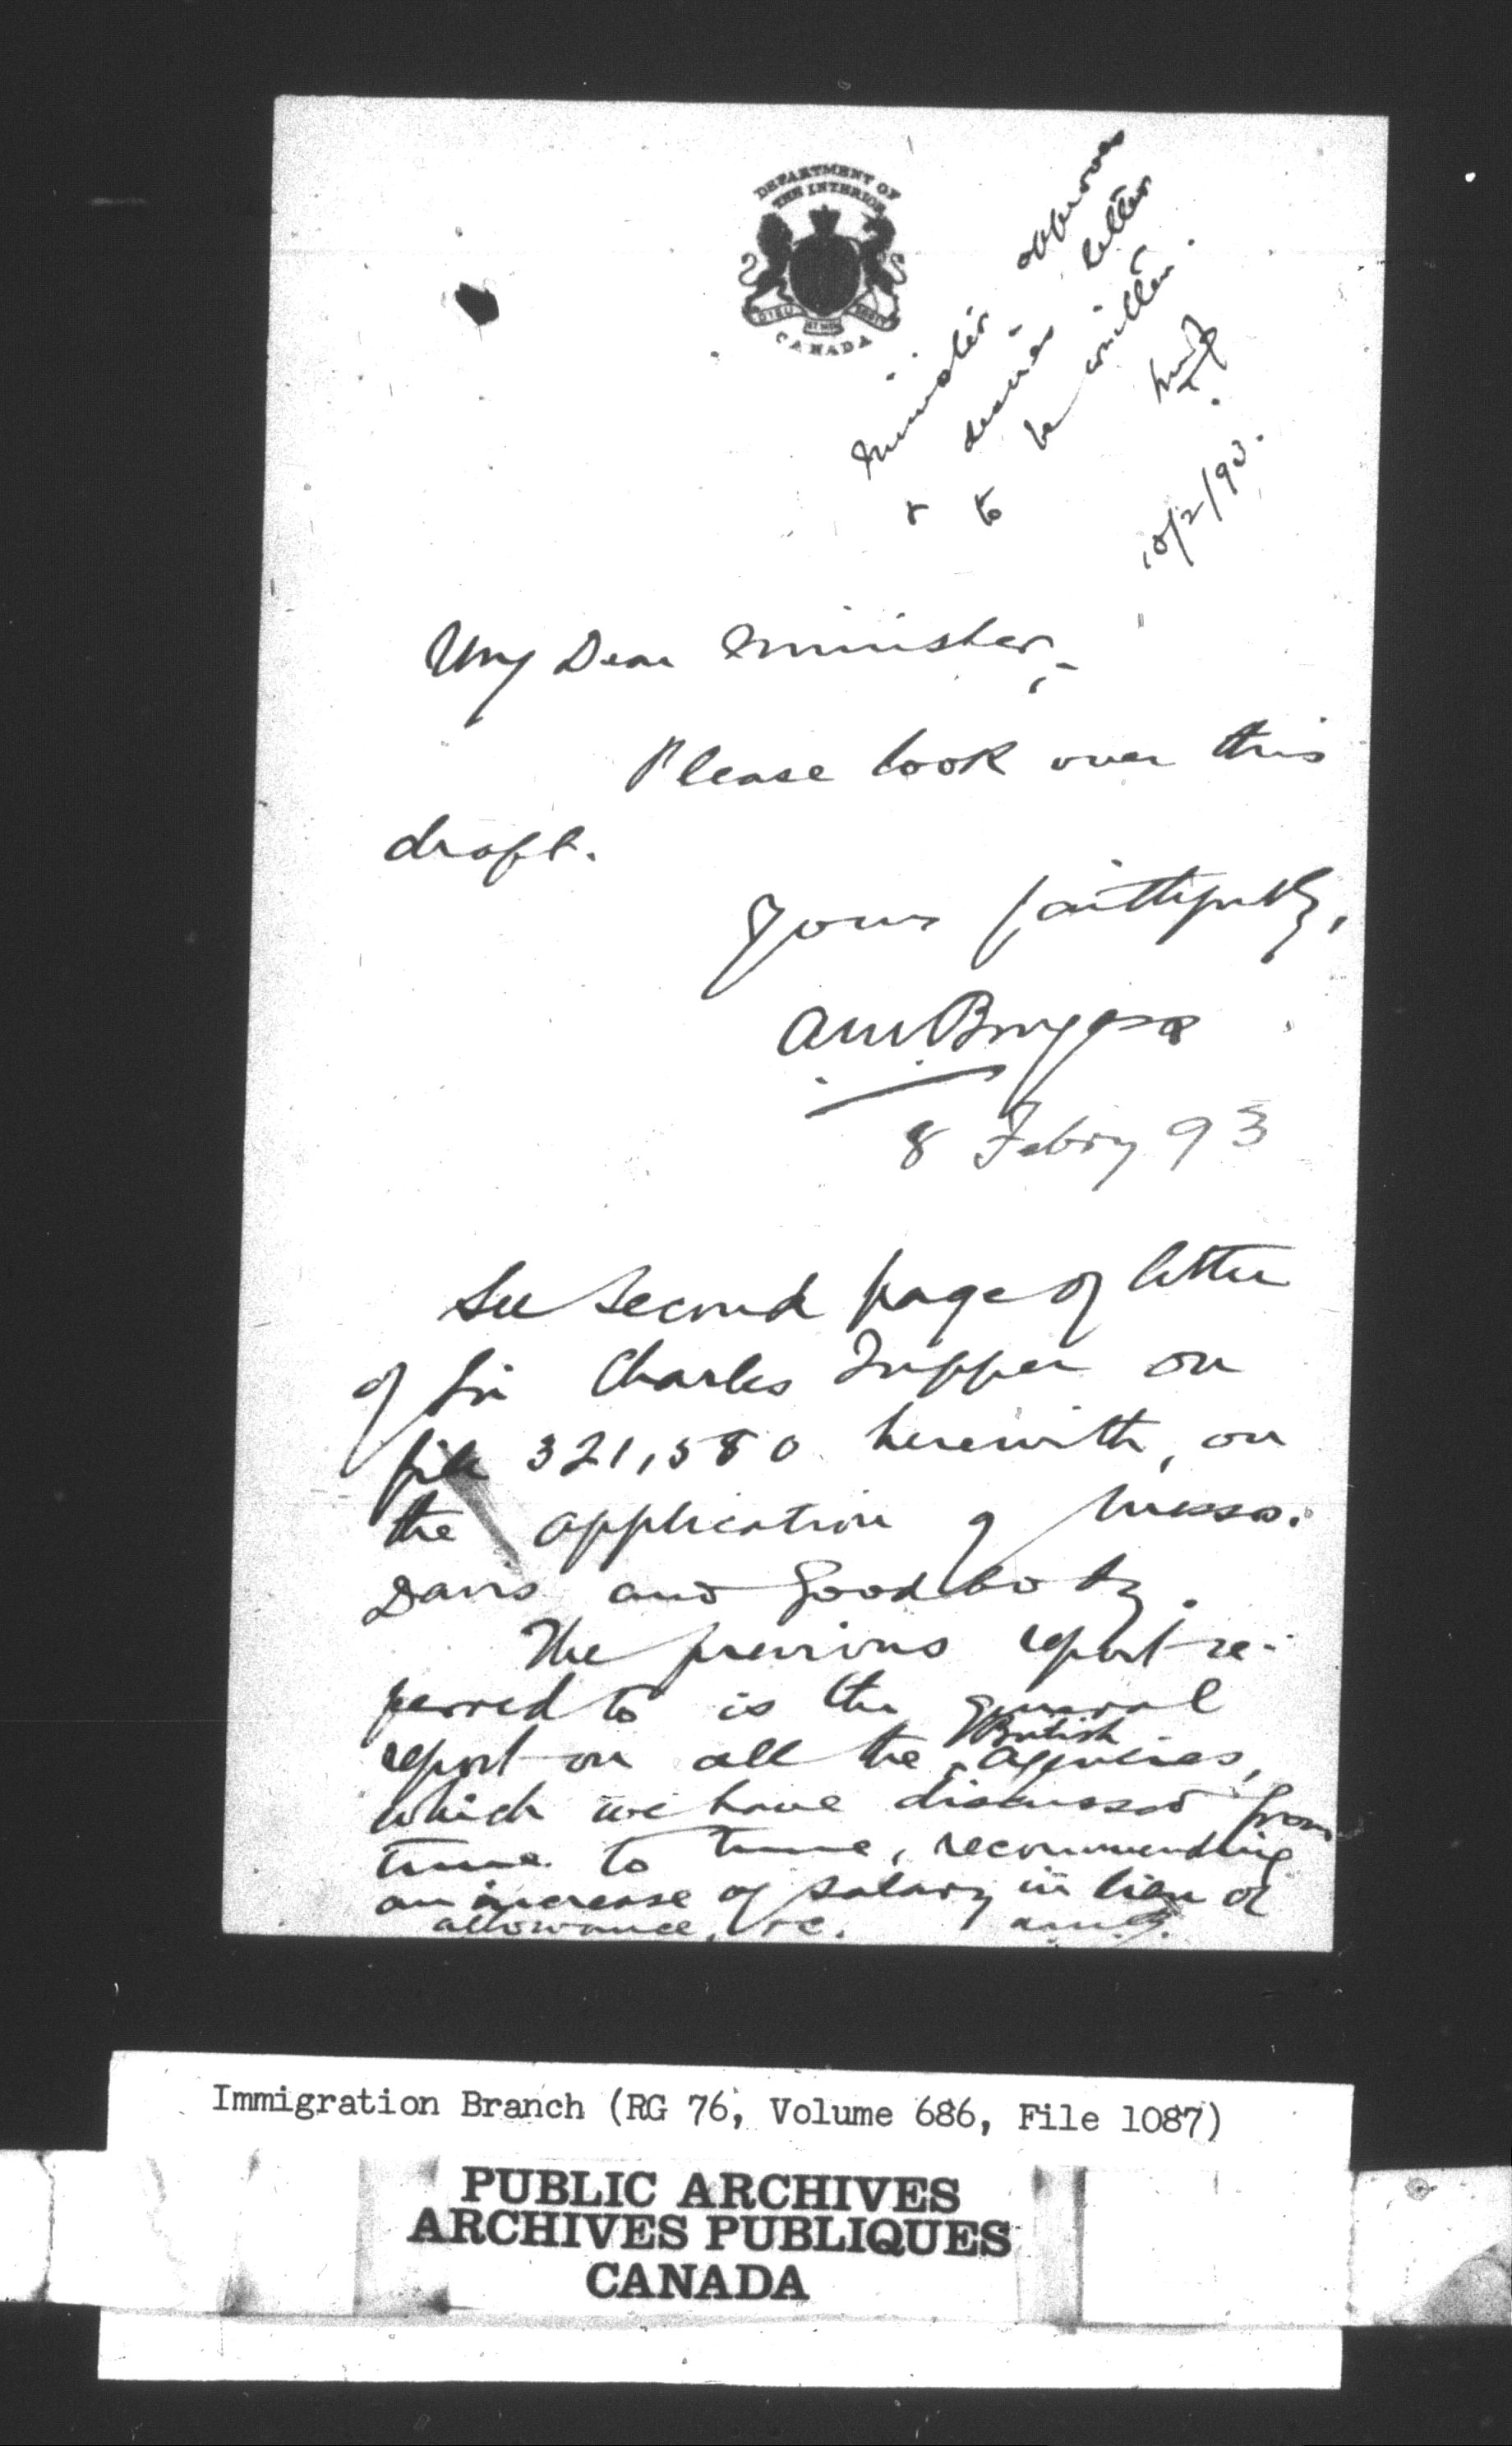 DEPARTMENT OF
THE INTERIOR
DIEU ET MON DROIT
CANADA
Minister approves
& desires letter
to be written.
10/2/93.
My Dear Minister,-
Please look over this
draft.
Yours faithfully,
AM Burgess
8 Febry 93
See second page of letter
of Sir Charles Tupper on
file 321,580 herewith, on
the application of Messrs.
Davis and Goodbody.
The previous report re-
ferred to is the general
report on all the British agencies,
which we have discussed from
time to time, recommending
an increase of salary in lieu of
allowance, &c. A.M.B.
Immigration Branch (RG 76, Volume 686, File 1087)
PUBLIC ARCHIVES
ARCHIVES PUBLIQUES
CANADA